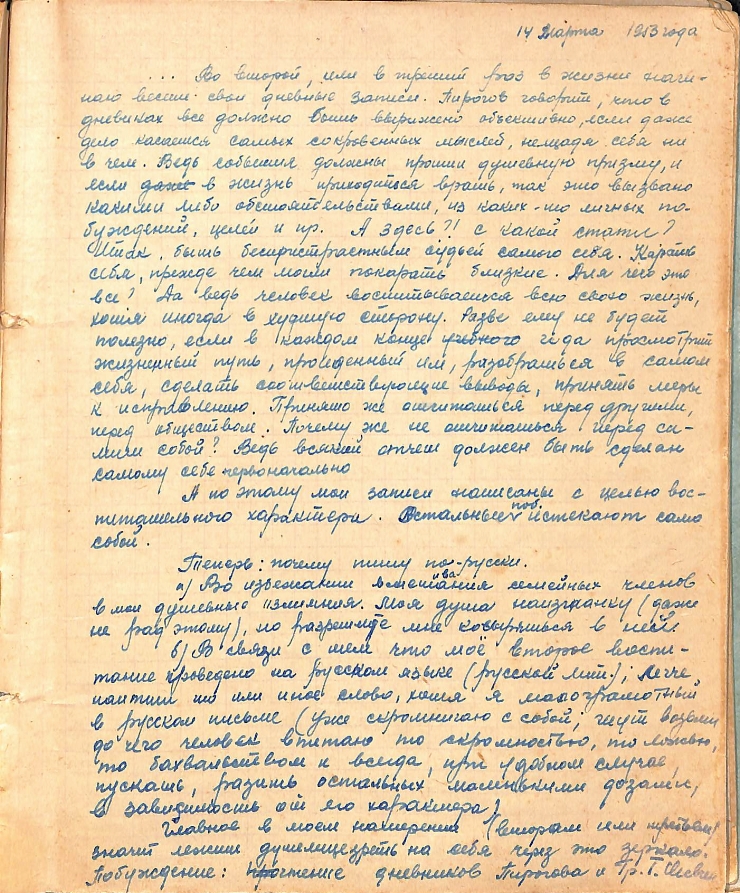 14 марта 1953 года
... Во второй, или в третий раз в жизни начи-
наю вести свои дневные записи. Пирогов говорит, что в
дневниках все должно быть выражено объективно, если даже
дело касается самых сокровенных мыслей, нещадя себя ни
в чем. Ведь события должны пройти душевную призму, и
если даже в жизнь приходится врать, так это вызвано
какими либо обстоятельствами, из каких-то личных по-
буждений, целей и пр. А здесь?! с какой стати?
Итак, быть беспристрастным судьей самого себя. Карать
себя, прежде чем могли покарать близкие. Для чего это
все? Да ведь человек воспитывается всю свою жизнь,
хотя иногда в худшую сторону. Разве ему не будет
полезно, если в каждом конце учебного года просмотрит
жизненный путь, пройденный им, разобраться в самом
себя, сделать соответствующие выводы, принять меры
к исправлению. Принято же отчитаться перед другими,
перед обществом. Почему же не отчитаться перед са-
мим собой? Ведь всякий отчет должен быть сделан
самому себе первоначально
А по этому мои записи написаны с целью вос-
питательного характера. Остальные поб. истекают само
собой.
Теперь: почему пишу по-русски.
а) Во избежании вмешивания семейных членов
в мои душевные излияния. Моя душа наизнанку (даже
не рад этому), но разрешите мне ковыряться в ней.
б) В связи с тем что моё второе воспи-
тание проведено на русском языке (русской лит.); легче
найти то или иное слово, хотя я малограмотный
в русском письме (уже скромничаю с собой;
до чего человек впитаю то скромностью, то ложью,
то бахвальством и всегда, при удобном случае,
пускать, разить остальных маленькими дозами,
в зависимость от его характера)
Главное в моем намерении (втором или третьем)
значит на себя через это зеркало.
Побуждение: Прочтение дневников Пирогова и Гр. Т.